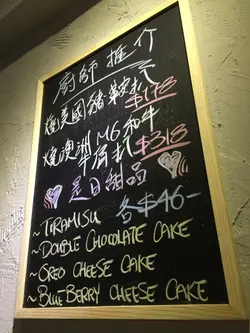 廚師推介
燒美國豬鞍扒 $178
燒澳洲M6和牛
三角扒 $318
是日甜品
各$46-
~TIRAMISU
~DOUBLE CHOCOLATE CAKE
~OREO CHEESE CAKE
~BLUEBERRY CHEESE CAKE